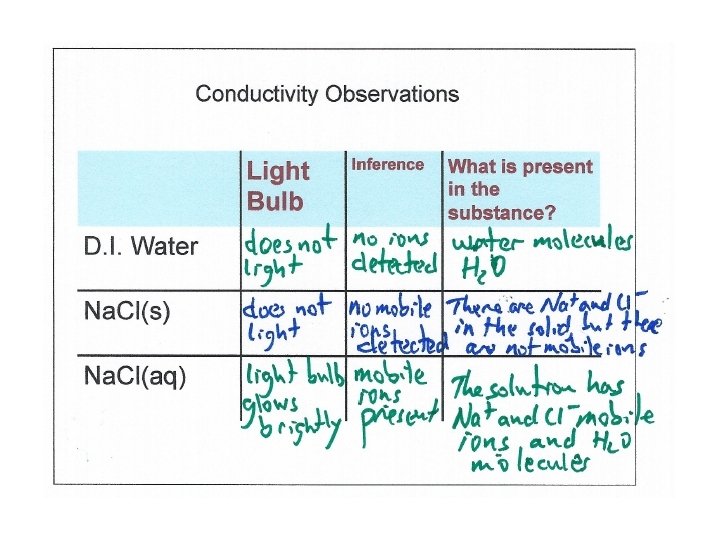 Conductivity Observations
Light
Bulb
Inference
What is present
in the
substance?
D.I. Water
does not
light
no ions
detected
water molecules
H₂O
Na. Cl(s)
does not
light
no mobile
ions
detected
There are Na⁺ and Cl⁻
in the solid, but there
are not mobile ions
Na. Cl(aq)
light bulb
glows
brightly
mobile
ions
present
The solution has
Na⁺ and Cl⁻ mobile
ions and H₂O
molecules